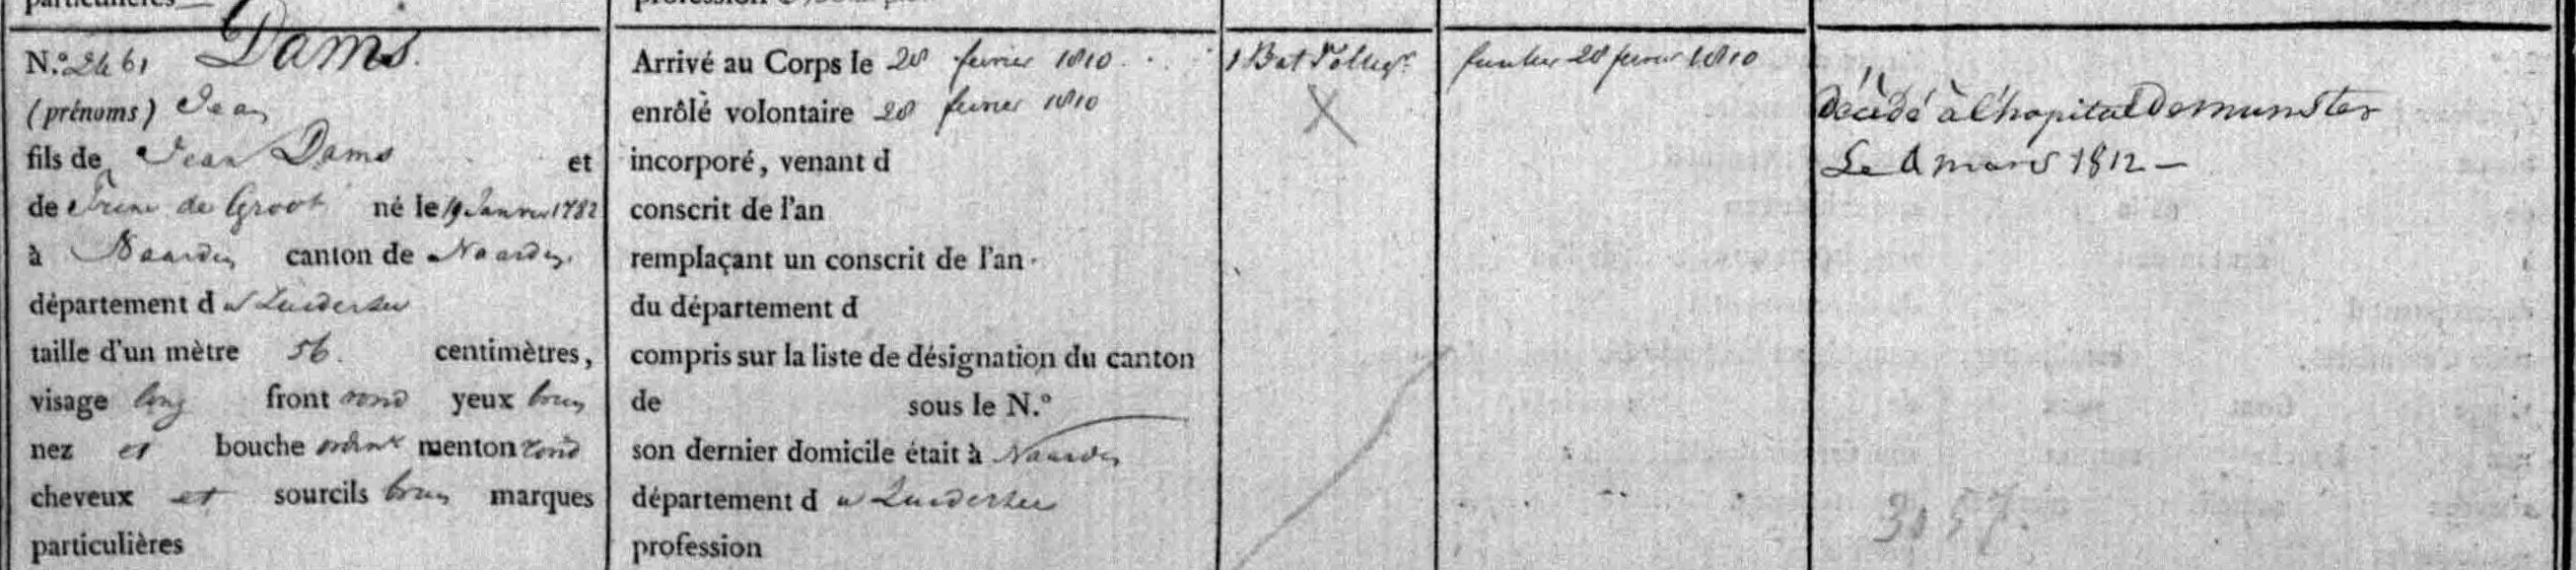 N.º 2461 Dams.
(prénoms) Jean
fils de Jean Dams et
de de Groot né le 19 Janvier 1782
à Naarden canton de Naarden
département du Zuiderzee
taille d'un mètre 56. centimètres,
visage long front rond yeux brun
nez et bouche ordinre menton rond
cheveux et sourcils brun marques
particulières
Arrivé au Corps le 28 fevrier 1810
enrôlé volontaire 28 fevrier 1810
incorporé, venant d
conscrit de l'an
remplaçant un conscrit de l'an
du département d
compris sur la liste de désignation du canton
de sous le N.º
son dernier domicile était à Naarden
département du Zuiderzee
profession
1 Bat
X
28 fevrier 1810
décédé à l'hopital de munster
Le mars 1812 —
3157.